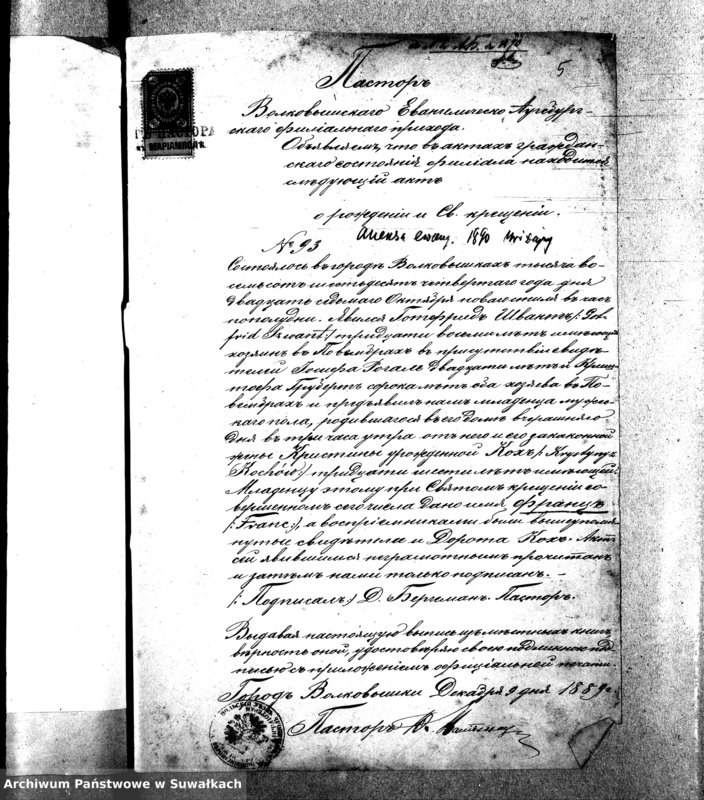 5
Пасторъ
Волковышскаго Евангелическо Аугсбург-
скаго филіальнаго прихода.
Объявляемъ, что въ актахъ граждан-
скаго состоянія филіала находится
слѣдующій актъ
о рожденіи и Св. крещеніи.
1890
№ 93
Состоялось въ городѣ Волковышкахъ тысяча во-
семьсотъ шестьдесятъ четвертаго года дня
двадцать седьмаго Октября новаго стиля въ часъ
пополудни. Явился Готфридъ Швантъ /: Got-
frid Szwant :/ тридцати восьми лѣтъ имѣющій
хозяинъ въ Повембрахъ въ присутствіи свидѣ-
телей Іосифа Рогале двадцати лѣтъ и Криш-
тофа Грубертъ сорока лѣтъ оба хозяева въ По-
вембрахъ и предъявилъ намъ младенца мужес-
каго пола, родившагося въ его домѣ вчерашняго
дня въ три часа утра отъ него и его законной
жены Кристины урожденной Кохъ /: Krystyny z
Kochów :/ тридцати шести лѣтъ имѣющей.
Младенцу этому при Святомъ крещеніи со-
вершенномъ сего числа дано имя Францъ
/: Franc :/, а воспріемниками были вышеупомя-
нутые свидѣтели и Дорота Кохъ. Актъ
сей явившимся неграмотнымъ прочитанъ
и затѣмъ нами только подписанъ. –
/: Подписалъ :/ Д. Бергеманъ. Пасторъ.
Выдавая настоящую выпись изъ мѣстныхъ книгъ,
вѣрность оной, удостовѣряю своею подлинною под-
писью съ приложеніемъ оффиціальной печати.
Городъ Волковышки Декабря 9 дня 1889 г.
Пасторъ
ПАСТОРА
МАРІАМПОЛЬ
Archiwum Państwowe w Suwałkach